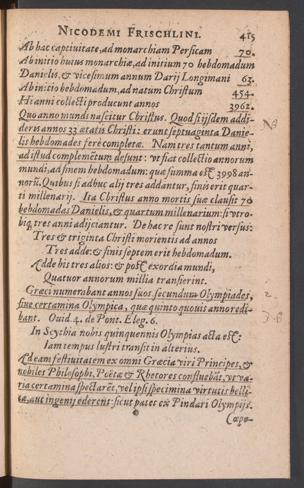 NICODEMI FRISCHLINI. 415
Ab hac captiuitate, ad monarchiam Persicam 70.
Ab initio huius monarchiæ, ad initium 70 hebdomadum
Danielis, & vicesimum annum Darij Longimani 63.
Ab initio hebdomadum, ad natum Christum 454.
Hi anni collecti producunt annos 3962.
Quo anno mundi nascitur Christus. Quod si ijsdem addi-
deris annos 33 ætatis Christi: erunt septuaginta Danie-
lis hebdomades ferè completæ. Nam tres tantum anni,
ad istud complemẽtum desunt: vt fiat collectio annorum
mundi, ad finem hebdomadum: quæ summa est 3998 an-
norũ. Quibus si adhuc alij tres addãntur, finis erit quar-
ti millenarij. Ita Christus anno mortis suæ clausit 70
hebdomadas Danielis, & quartum millenarium: si vtro-
biq; tres anni adijciantur. De hac re sunt nostri versus:
Tres & triginta Christi morientis ad annos
Tres adde: & finis septem erit hebdomadum.
Adde bis tres alios: & post exordia mundi,
Quatuor annorum millia transierint.
Græci numerabant annos suos secundum Olympiades,
siue certamina Olympica, quæ quinto quouis anno redi-
bant. Ouid 4. de Pont. Eleg. 6.
In Scythia nobis quinquennis Olympias acta est:
Iam tempus lustri transit in alterius.
Ad eam festiuitatem ex omni Græcia viri Principes, &
nobiles Philosophi, Poëtæ & Rhetores confluebãt, vt va-
ria certamina spectarẽt, vel ipsi specimina virtutis belli-
cæ, aut ingenij ederent: sicut patet ex Pindari Olympijs.
Cœpe-